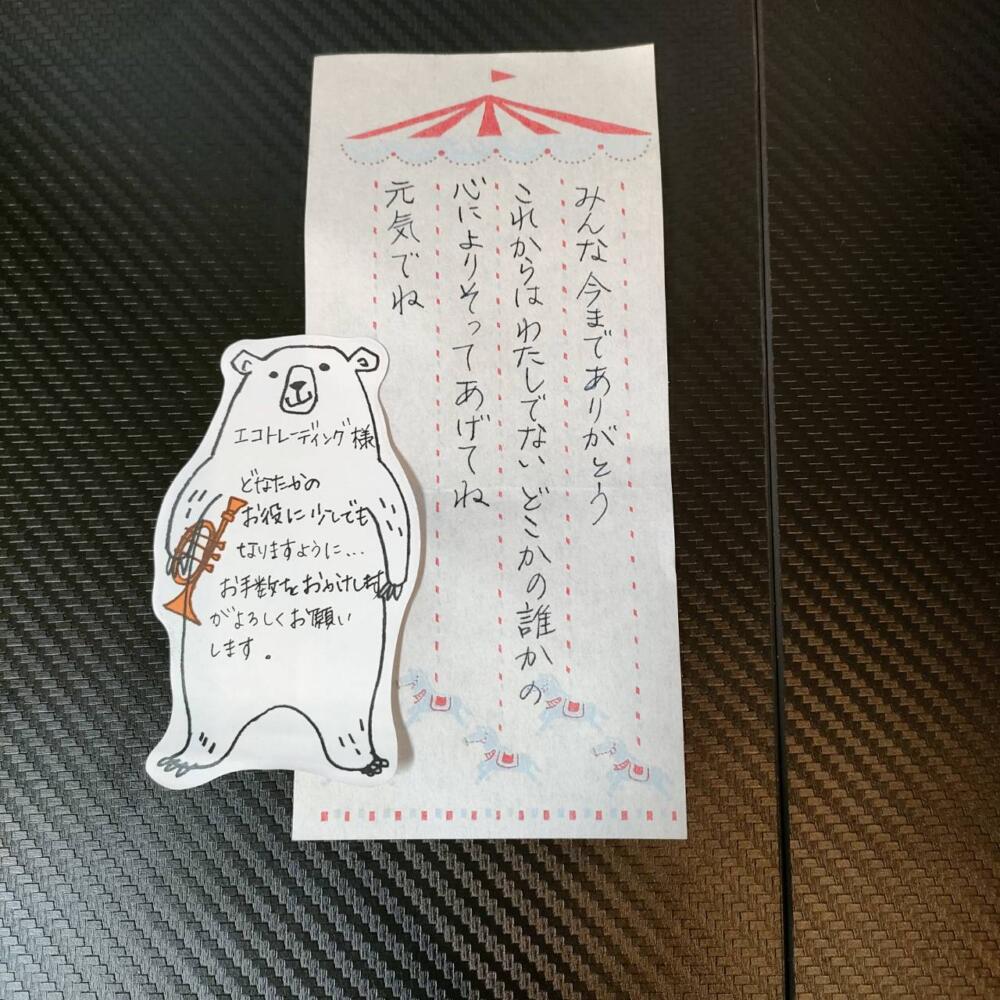 みんな今までありがとう
これからはわたしでないどこかの誰かの
心によりそってあげてね
元気でね
エコトレーディング様
どなたかの
お役に少しでも
なりますように...
お手数をおかけします
がよろしくお願い
します。